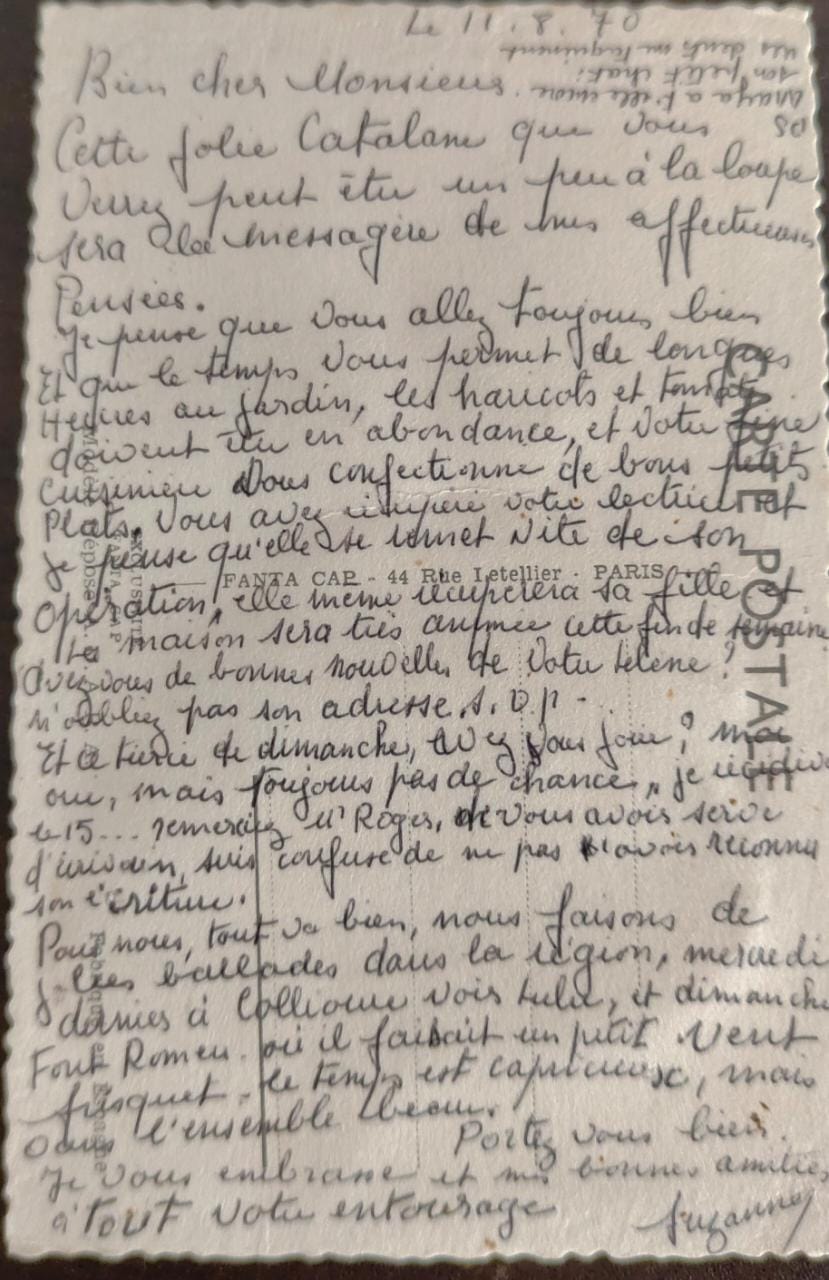 Le 11.8.70
Bien cher Monsieur.
Cette jolie Catalane que vous
verrez peut être un peu à la loupe
sera la messagère de mes affectueuses
Pensées.
Je pense que vous allez toujours bien
Et que le temps vous permet de longues
Heures au jardin, les haricots et tomates
doivent être en abondance, et votre fine
Cuisinière vous confectionne de bons petits
Plats. Vous avez récupéré votre lectrice et
je pense qu'elle se remet vite de son
opération, elle même récupérera sa fille et
la maison sera très animée cette fin de semaine
Avez vous de bonnes nouvelles de votre
n'oubliez pas son adresse. s. v. p -
Et ce tiercé de dimanche, avez vous joué? moi
oui, mais toujours pas de chance, je récidive
le 15... remerciez Mr Roger, de vous avoir servi
d'écrivain, suis confuse de ne pas avoir reconnu
son écriture.
Pour nous, tout va bien, nous faisons de
jolies ballades dans la région, mercredi
dernier à Collioure voir, et dimanche
Font Romeu. où il faisait un petit vent
frisquet. le temps est capricieux, mais
dans l'ensemble beau.
Portez vous bien.
Je vous embrasse et mes bonnes amitiés
à tout votre entourage
Suzanne
PS
a t'elle encore
son petit chat?
ses dents
CARTE POSTALE
FANTA CAP - 44 Rue Letellier - PARIS